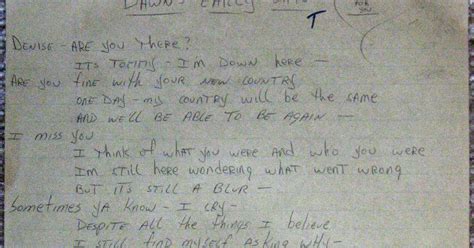 DAWN'S EARLY
FOR
YOU
T
DENISE - ARE YOU THERE?
ITS TOMMY - I'M DOWN HERE -
ARE YOU FINE WITH YOUR NEW COUNTRY
ONE DAY - MY COUNTRY WILL BE THE SAME
AND WE'LL BE ABLE TO BE AGAIN -
I MISS YOU
I THINK OF WHAT YOU WERE AND WHO YOU WERE
I'M STILL HERE WONDERING WHAT WENT WRONG
BUT IT'S STILL A BLUR -
SOMETIMES YA KNOW - I CRY -
DESPITE ALL THE THINGS I BELIEVE
I STILL FIND MYSELF ASKING WHY -